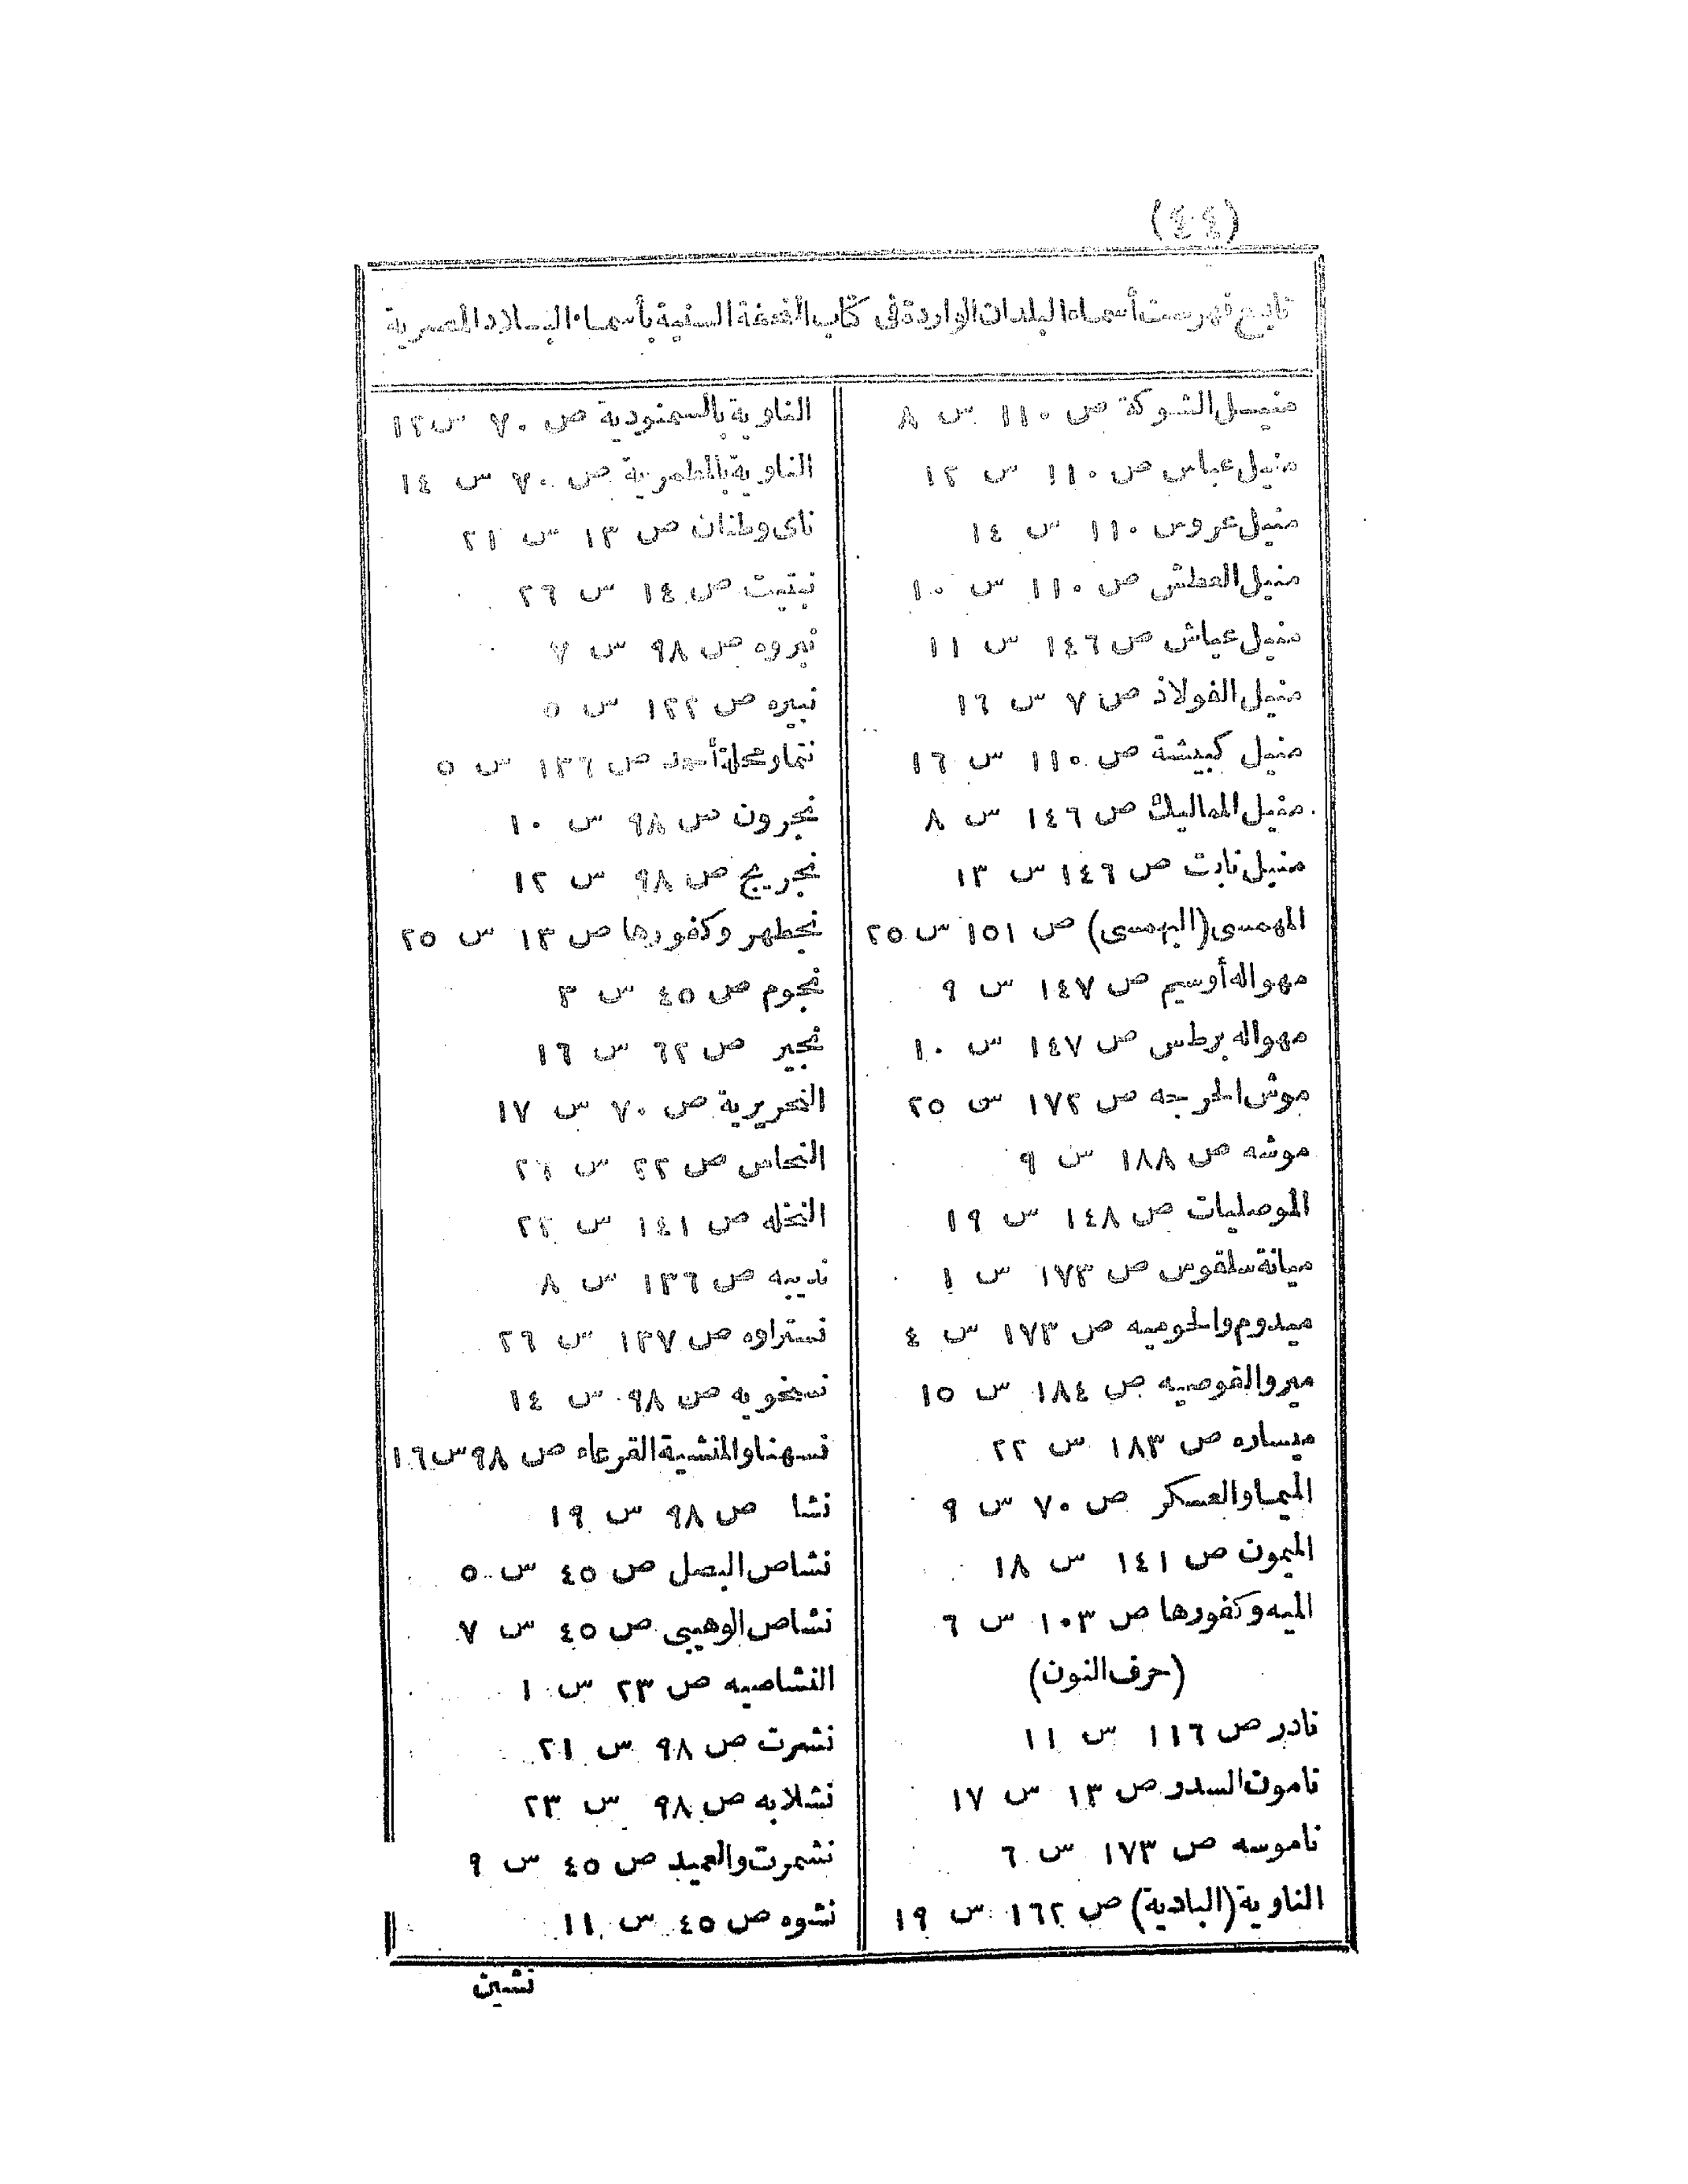 (٤٤)
تابع فهرست أسماء البلدان الواردة فى كتاب التحفة السنية بأسماء البلاد المصرية
منيل الشوكة ص ١١٠ س ٨
منيل عباس ص ١١٠ س ١٢
منيل عروس ١١٠ س ١٤
منيل العطش ص ١١٠ س ١٠
منيل عياش ص ١٤٦ س ١١
منيل الفولاذ ص ٧ س ١٦
منيل كبيشة ص ١١٠ س ١٦
منيل المماليك ص ١٤٦ س ٨
منيل نابت ص ١٤٦ س ١٣
المهمسى (البهمسى) ص ١٥١ س ٢٥
مهواله أوسيم ص ١٤٧ س ٩
مهواله برطس ص ١٤٧ س ١٠
موش الحرجه ص ١٧٢ س ٢٥
موشه ص ١٨٨ س ٩
الموصليات ص ١٤٨ س ١٩
ميانة سلقوس ص ١٧٣ س ١
ميدوم والحوميه ص ١٧٣ س ٤
مير والقوصيه ص ١٨٤ س ١٥
ميساره ص ١٨٣ س ٢٢
الميما والعسكر ص ٧٠ س ٩
الميمون ص ١٤١ س ١٨
الميه وكفورها ص ١٠٣ س ٦
(حرف النون)
نادر ص ١١٦ س ١١
ناموت السدر ص ١٣ س ١٧
ناموسه ص ١٧٣ س ٦
الناوية (البادية) ص ١٦٢ س ١٩
الناوية بالسمنودية ص ٧٠ س ١٢
الناوية بالطمرية ص ٧٠ س ١٤
ناى وطنان ص ١٣ س ٢١
نبتيت ص ١٤ س ٢٦
نبروه ص ٩٨ س ٧
نبيره ص ١٢٢ س ٥
نتما ومحلة أحمد ص ١٣٦ س ٥
نجرون ص ٩٨ س ١٠
نجريج ص ٩٨ س ١٢
نجطهر وكفورها ص ١٣ س ٢٥
نجوم ص ٤٥ س ٣
نجير ص ٦٢ س ١٦
النحريرية ص ٧٠ س ١٧
النحاس ص ٢٢ س ٢٦
النخله ص ١٤١ س ٢٢
نديبه ص ١٣٦ س ٨
نستراوه ص ١٣٧ س ٢٦
نسخويه ص ٩٨ س ١٤
نسهنا والمنشية القرعاء ص ٩٨ س ١٦
نشا ص ٩٨ س ١٩
نشاص البصل ص ٤٥ س ٥
نشاص الوهيبى ص ٤٥ س ٧
النشاصيه ص ٢٣ س ١
نشرت ص ٩٨ س ٢١
نشلابه ص ٩٨ س ٢٣
نشمرت والعميد ص ٤٥ س ٩
نشوه ص ٤٥ س ١١
نشين